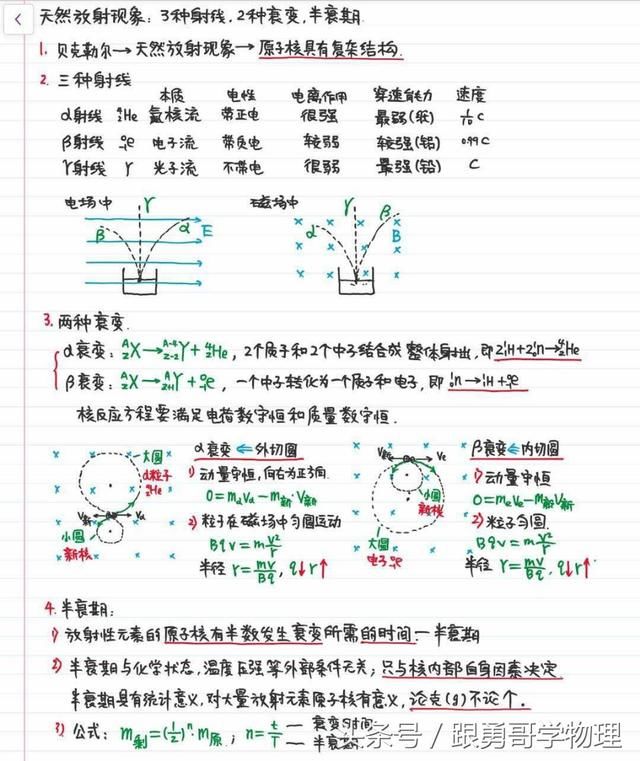 天然放射现象：3种射线，2种衰变，半衰期.
1. 贝克勒尔→天然放射现象→原子核具有复杂结构.
2. 三种射线
本质 电性 电离作用 穿透能力 速度
α射线 ⁴₂He 氦核流 带正电 很强 最弱(纸) 1/10 C
β射线 ⁰₋₁e 电子流 带负电 较弱 较强(铝) 0.99C
γ射线 γ 光子流 不带电 很弱 最强(铅) C
电场中 γ 磁场中 γ
β α E α β B
3. 两种衰变.
α衰变：ᴬ_ZX→ᴬ⁻⁴_Z₋₂Y+⁴₂He，2个质子和2个中子结合成整体射出，即2¹₁H+2¹₀n→⁴₂He
β衰变：ᴬ_ZX→ᴬ_Z₊₁Y+⁰₋₁e，一个中子转化为一个质子和电子，即¹₀n→¹₁H+⁰₋₁e
核反应方程要满足电荷数守恒和质量数守恒.
大圆 α粒子 ⁴₂He
V新 Vα
小圆 新核
α衰变⇐外切圆
1) 动量守恒，向右为正方向.
0=mαVα-m新·V新
2) 粒子在磁场中匀圆运动
Bqv=mv²/r
半径 r=mv/Bq，q↓r↑
V新 Ve
小圆 新核
大圆 电子⁰₋₁e
β衰变⇐内切圆
1) 动量守恒
0=meVe-m新V新
2) 粒子匀圆.
Bqv=mv²/r
半径 r=mv/Bq，q↓r↑
4. 半衰期：
1) 放射性元素的原子核有半数发生衰变所需的时间—半衰期
2) 半衰期与化学状态，温度压强等外部条件无关；只与核内部自身因素决定
半衰期具有统计意义，对大量放射元素原子核有意义，论克(g)不论个.
3) 公式：m剩=(1/2)ⁿ·m原；n=t/T —衰变时间 —半衰期
头条号 / 跟勇哥学物理